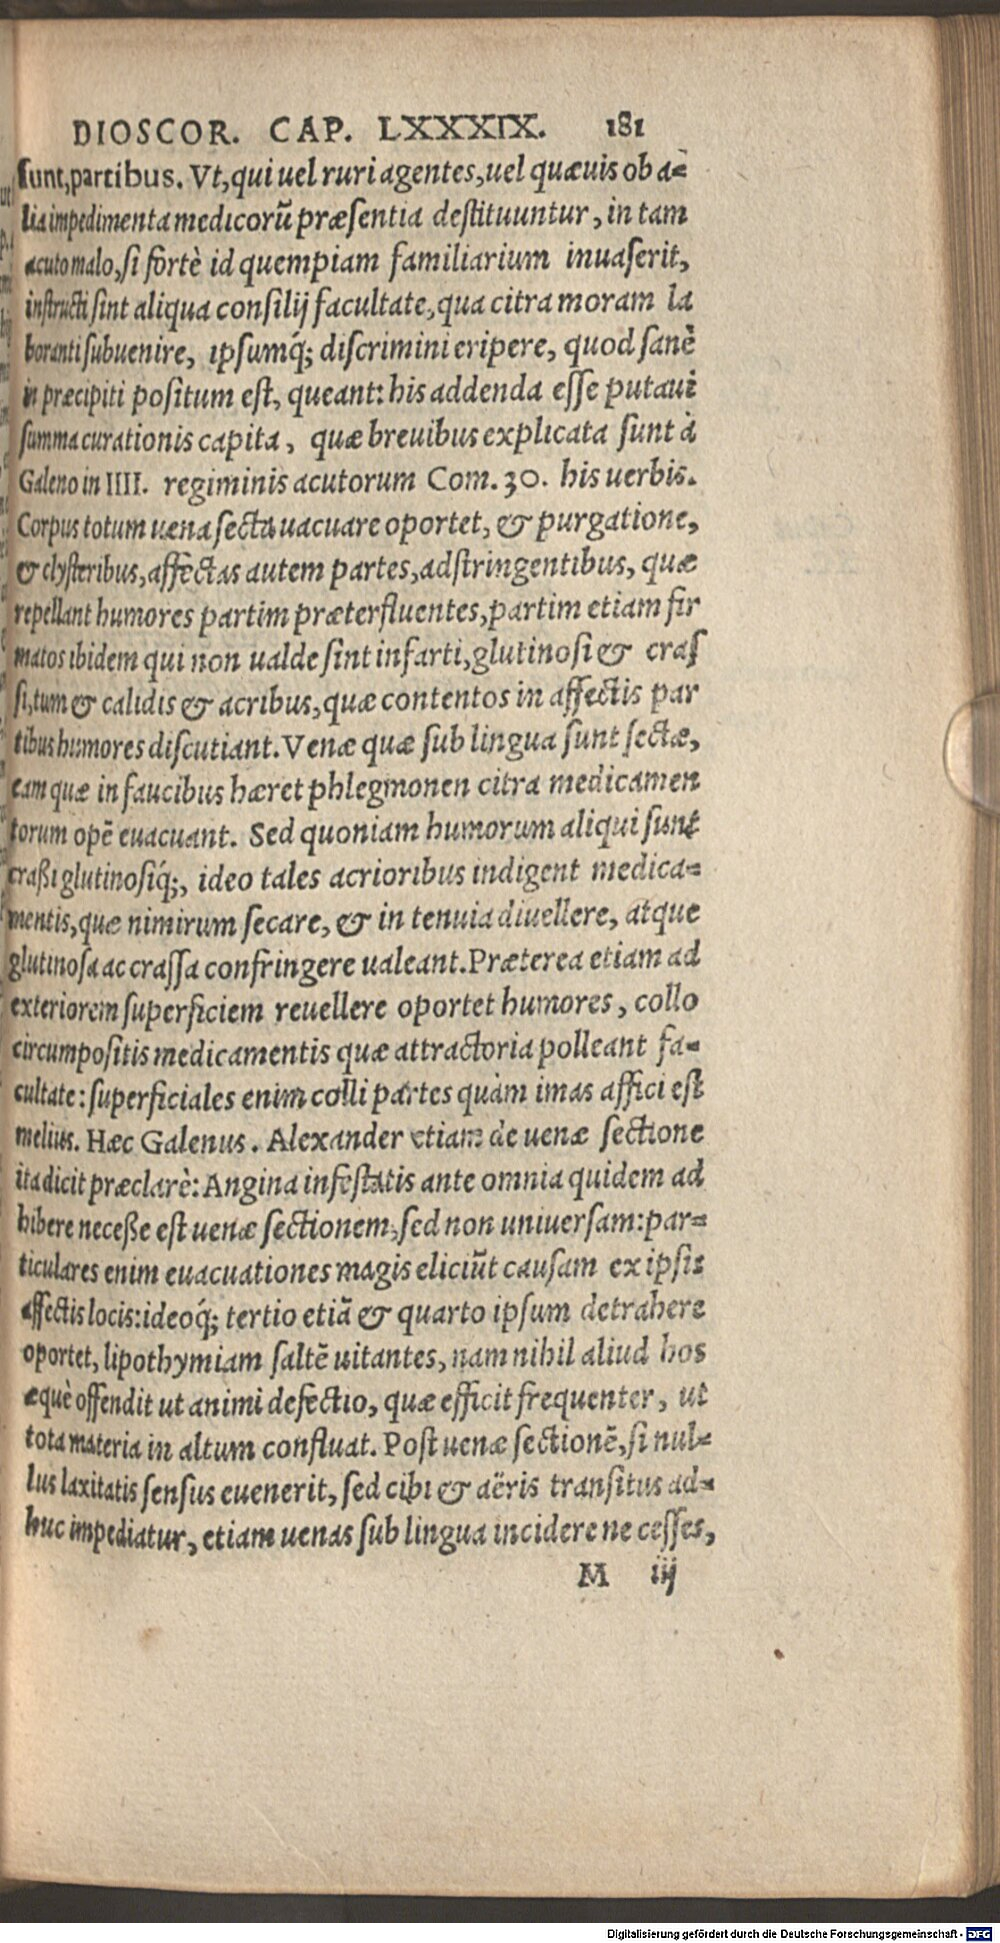 DIOSCOR. CAP. LXXXIX. 181
sunt, partibus. Vt, qui uel ruri agentes, uel quæuis ob a-
lia impedimenta medicorũ præsentia destituuntur, in tam
acuto malo, si fortè id quempiam familiarium inuaserit,
instructi sint aliqua consilij facultate, qua citra moram la
boranti subuenire, ipsumq́; discrimini eripere, quod sanè
in præcipiti positum est, queant: his addenda esse putaui
summa curationis capita, quæ breuibus explicata sunt à
Galeno in IIII. regiminis acutorum Com. 30. his uerbis.
Corpus totum uena secta uacuare oportet, & purgatione,
& clysteribus, affectas autem partes, adstringentibus, quæ
repellant humores partim præterfluentes, partim etiam fir
matos ibidem qui non ualde sint infarti, glutinosi & cras
si, tum & calidis & acribus, quæ contentos in affectis par
tibus humores discutiant. Venæ quæ sub lingua sunt sectæ,
eam quæ in faucibus hæret phlegmonen citra medicamen
torum opẽ euacuant. Sed quoniam humorum aliqui sunt
craßi glutinosiq́;, ideo tales acrioribus indigent medica-
mentis, quæ nimirum secare, & in tenuia diuellere, atque
glutinosa ac crassa confringere ualeant. Præterea etiam ad
exteriorem superficiem reuellere oportet humores, collo
circumpositis medicamentis quæ attractoria polleant fa-
cultate: superficiales enim colli partes quàm imas affici est
melius. Hæc Galenus. Alexander etiam de uenæ sectione
ita dicit præclarè: Angina infestatis ante omnia quidem ad
hibere neceße est uenæ sectionem, sed non uniuersam: par-
ticulares enim euacuationes magis eliciũt causam ex ipsis
affectis locis: ideoq́; tertio etiã & quarto ipsum detrahere
oportet, lipothymiam saltẽ uitantes, nam nihil aliud hos
æquè offendit ut animi defectio, quæ efficit frequenter, ut
tota materia in altum confluat. Post uenæ sectionẽ, si nul-
lus laxitatis sensus euenerit, sed cibi & aëris transitus ad-
huc impediatur, etiam uenas sub lingua incidere ne cesses,
M iij
Digitalisierung gefördert durch die Deutsche Forschungsgemeinschaft - DFG